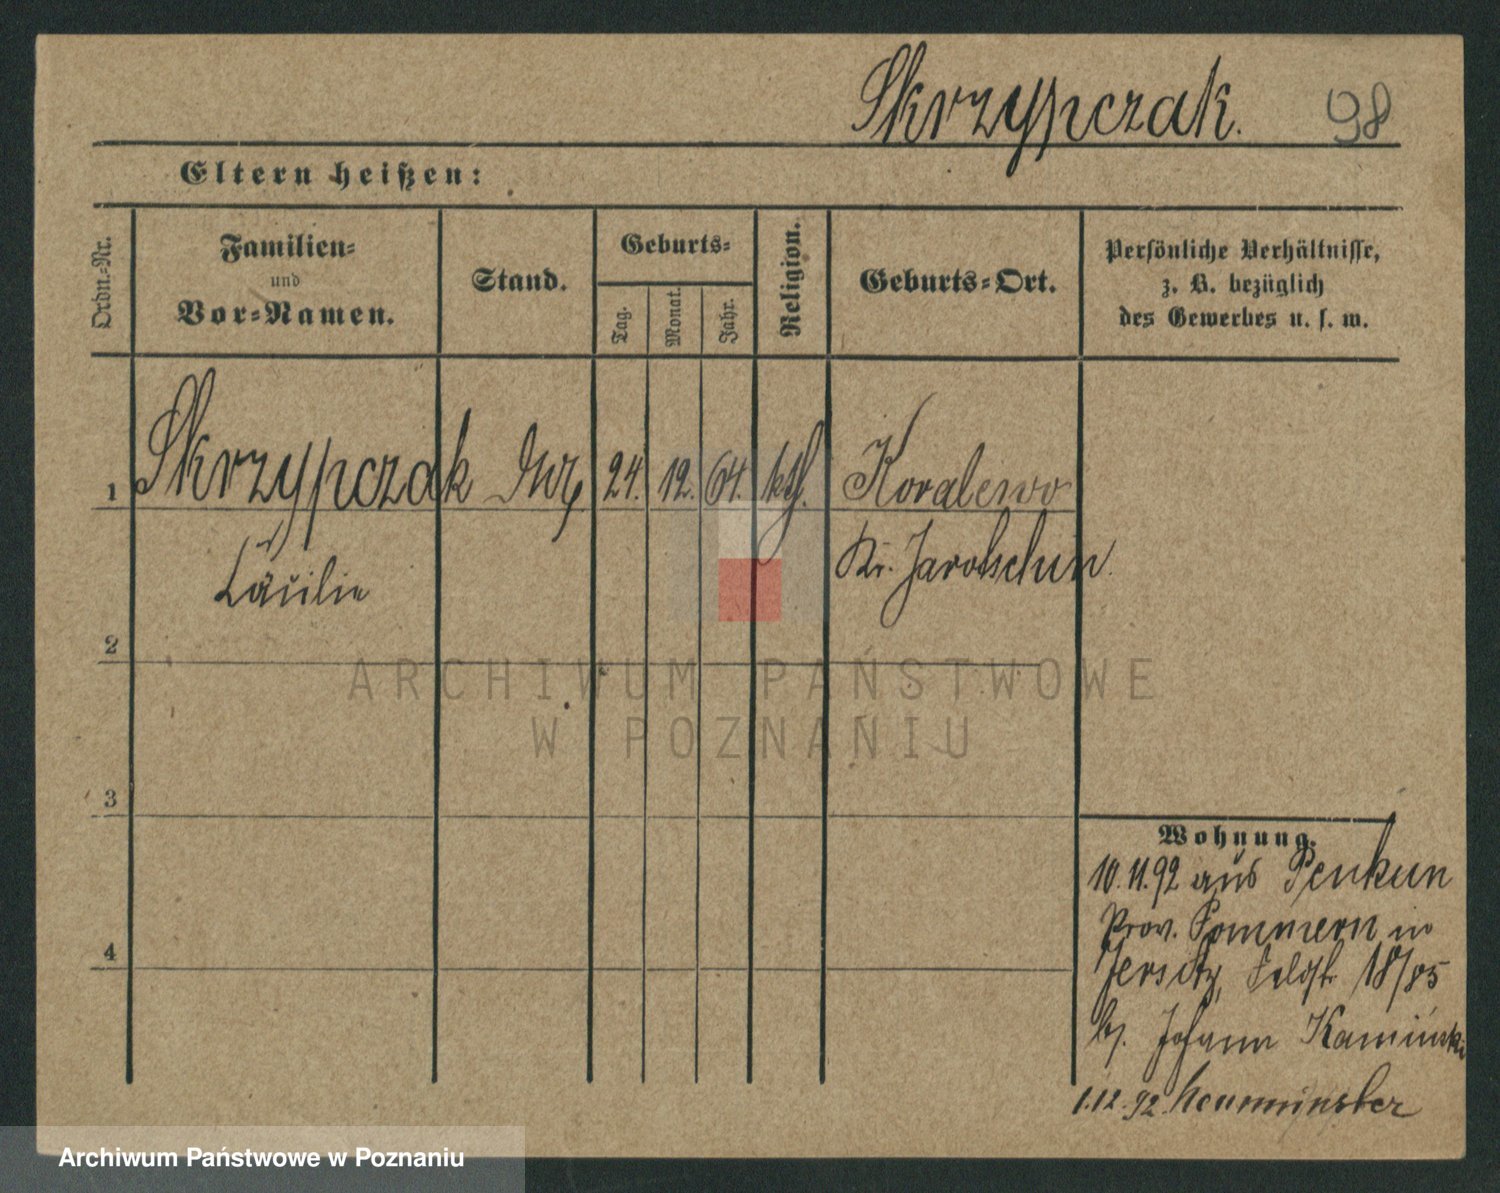 Skrzypczak. 98
Eltern heißen:
Ordn.-Nr.
Familien-
und
Vor-Namen.
Stand.
Geburts-
Tag.
Monat.
Jahr.
Religion.
Geburts-Ort.
Persönliche Verhältnisse,
z. B. bezüglich
des Gewerbes u. s. w.
1 Skrzypczak 24. 12. 64. kth. Kovalewo
Kr. Jarotschin
2
3
4
Wohnung.
10.11.92 aus Penkun
Prov. Pommern in
Jersitz, Feldst. 18/85
b. Johann Kaminski
1.12.92 Neumünster
ARCHIWUM PAŃSTWOWE
W POZNANIU
Archiwum Państwowe w Poznaniu